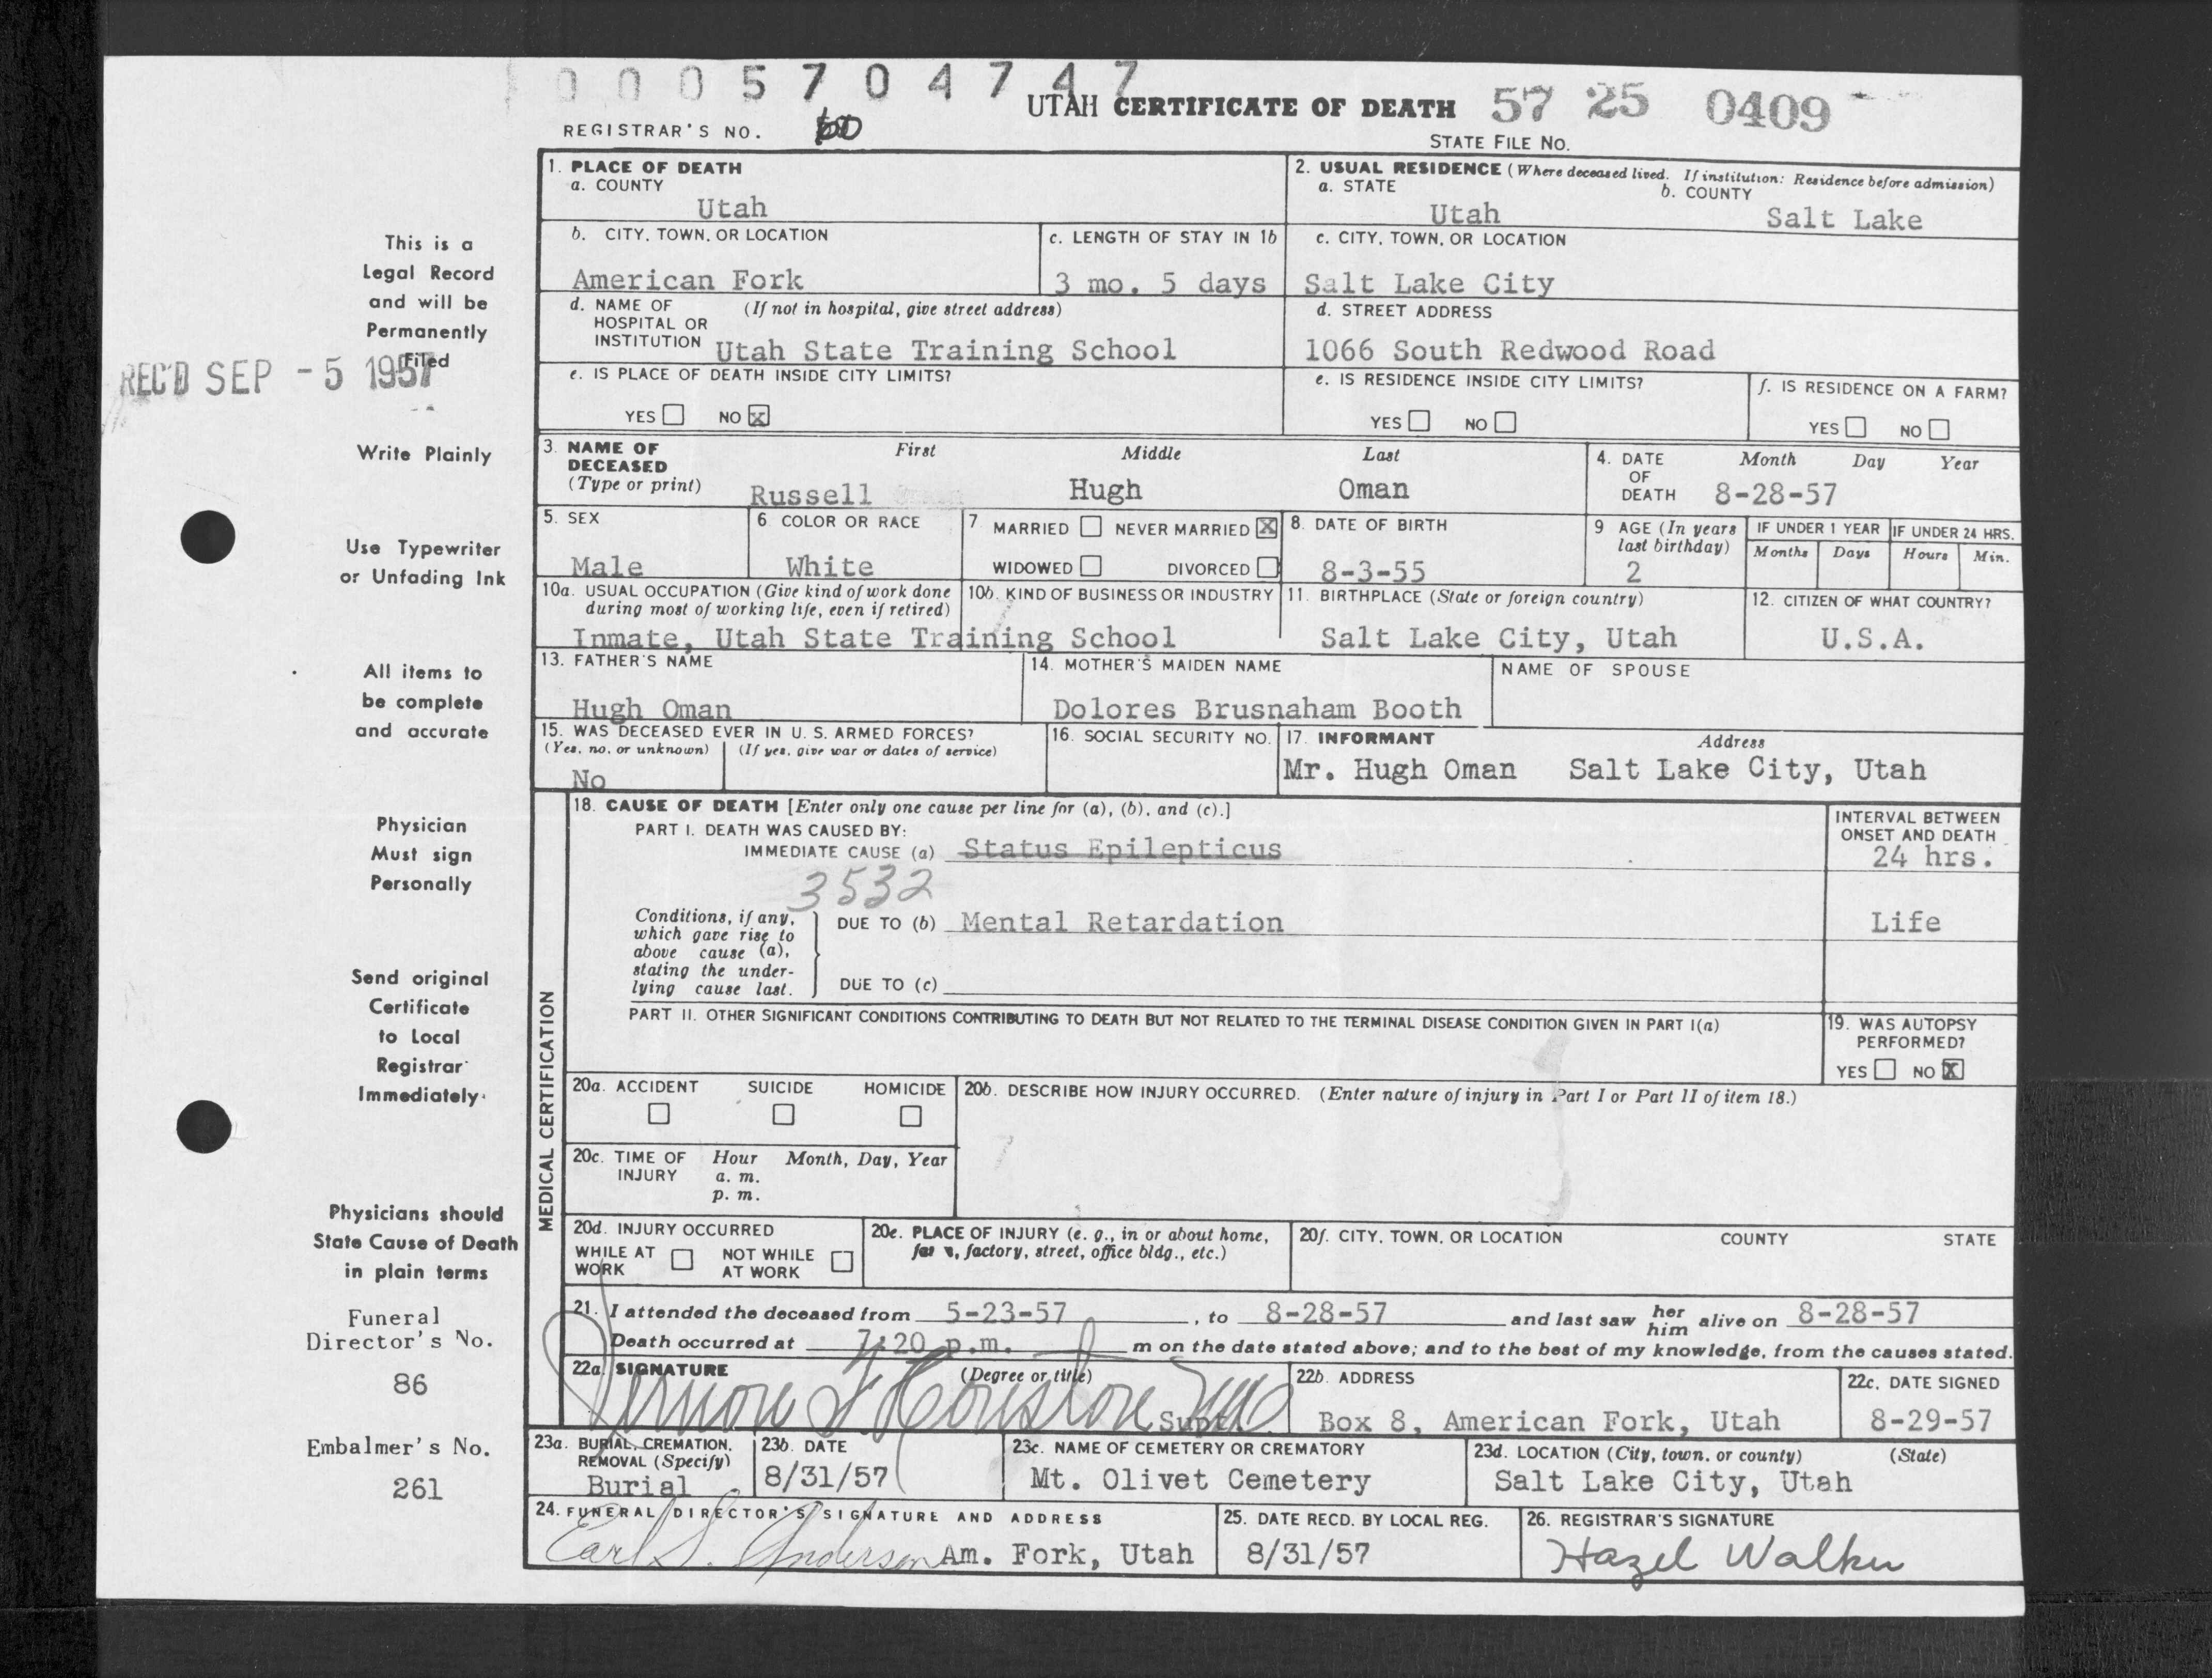 0 0 0 5 7 0 4 7 4 7
UTAH CERTIFICATE OF DEATH 57 25 0409
REGISTRAR'S NO. 60
STATE FILE NO.
This is a
Legal Record
and will be
Permanently
Filed
REC'D SEP - 5 1957
Write Plainly
Use Typewriter
or Unfading Ink
All items to
be complete
and accurate
Physician
Must sign
Personally
Send original
Certificate
to Local
Registrar
Immediately
Physicians should
State Cause of Death
in plain terms
Funeral
Director's No.
86
Embalmer's No.
261
1. PLACE OF DEATH
a. COUNTY
Utah
2. USUAL RESIDENCE (Where deceased lived. If institution: Residence before admission)
a. STATE b. COUNTY
Utah Salt Lake
b. CITY, TOWN, OR LOCATION
American Fork
c. LENGTH OF STAY IN 1b
3 mo. 5 days
c. CITY, TOWN, OR LOCATION
Salt Lake City
d. NAME OF (If not in hospital, give street address)
HOSPITAL OR
INSTITUTION Utah State Training School
d. STREET ADDRESS
1066 South Redwood Road
e. IS PLACE OF DEATH INSIDE CITY LIMITS?
YES NO X
e. IS RESIDENCE INSIDE CITY LIMITS?
YES NO
f. IS RESIDENCE ON A FARM?
YES NO
3. NAME OF First Middle Last
DECEASED
(Type or print) Russell Hugh Oman
4. DATE Month Day Year
OF
DEATH 8-28-57
5. SEX
Male
6. COLOR OR RACE
White
7 MARRIED NEVER MARRIED X
WIDOWED DIVORCED
8. DATE OF BIRTH
8-3-55
9 AGE (In years
last birthday)
2
IF UNDER 1 YEAR
Months Days
IF UNDER 24 HRS.
Hours Min.
10a. USUAL OCCUPATION (Give kind of work done
during most of working life, even if retired)
10b. KIND OF BUSINESS OR INDUSTRY
Inmate, Utah State Training School
11. BIRTHPLACE (State or foreign country)
Salt Lake City, Utah
12. CITIZEN OF WHAT COUNTRY?
U.S.A.
13. FATHER'S NAME
Hugh Oman
14. MOTHER'S MAIDEN NAME
Dolores Brusnaham Booth
NAME OF SPOUSE
15. WAS DECEASED EVER IN U. S. ARMED FORCES?
(Yes, no, or unknown) (If yes, give war or dates of service)
No
16. SOCIAL SECURITY NO.
17. INFORMANT Address
Mr. Hugh Oman Salt Lake City, Utah
MEDICAL CERTIFICATION
18. CAUSE OF DEATH [Enter only one cause per line for (a), (b), and (c).]
PART I. DEATH WAS CAUSED BY:
IMMEDIATE CAUSE (a) Status Epilepticus
INTERVAL BETWEEN
ONSET AND DEATH
24 hrs.
3532
Conditions, if any,
which gave rise to
above cause (a),
stating the under-
lying cause last.
DUE TO (b) Mental Retardation
Life
DUE TO (c)
PART II. OTHER SIGNIFICANT CONDITIONS CONTRIBUTING TO DEATH BUT NOT RELATED TO THE TERMINAL DISEASE CONDITION GIVEN IN PART I(a)
19. WAS AUTOPSY
PERFORMED?
YES NO X
20a. ACCIDENT SUICIDE HOMICIDE
20b. DESCRIBE HOW INJURY OCCURRED. (Enter nature of injury in Part I or Part II of item 18.)
20c. TIME OF Hour Month, Day, Year
INJURY a. m.
p. m.
20d. INJURY OCCURRED
WHILE AT NOT WHILE
WORK AT WORK
20e. PLACE OF INJURY (e. g., in or about home,
factory, street, office bldg., etc.)
20f. CITY, TOWN, OR LOCATION COUNTY STATE
21. I attended the deceased from 5-23-57, to 8-28-57 and last saw her him alive on 8-28-57
Death occurred at 7:20 p.m. m on the date stated above; and to the best of my knowledge, from the causes stated.
22a. SIGNATURE (Degree or title)
Vernon F Houston MD Supt.
22b. ADDRESS
Box 8, American Fork, Utah
22c. DATE SIGNED
8-29-57
23a. BURIAL, CREMATION,
REMOVAL (Specify)
Burial
23b. DATE
8/31/57
23c. NAME OF CEMETERY OR CREMATORY
Mt. Olivet Cemetery
23d. LOCATION (City, town, or county) (State)
Salt Lake City, Utah
24. FUNERAL DIRECTOR'S SIGNATURE AND ADDRESS
Earl S. Anderson Am. Fork, Utah
25. DATE RECD. BY LOCAL REG.
8/31/57
26. REGISTRAR'S SIGNATURE
Hazel Walker